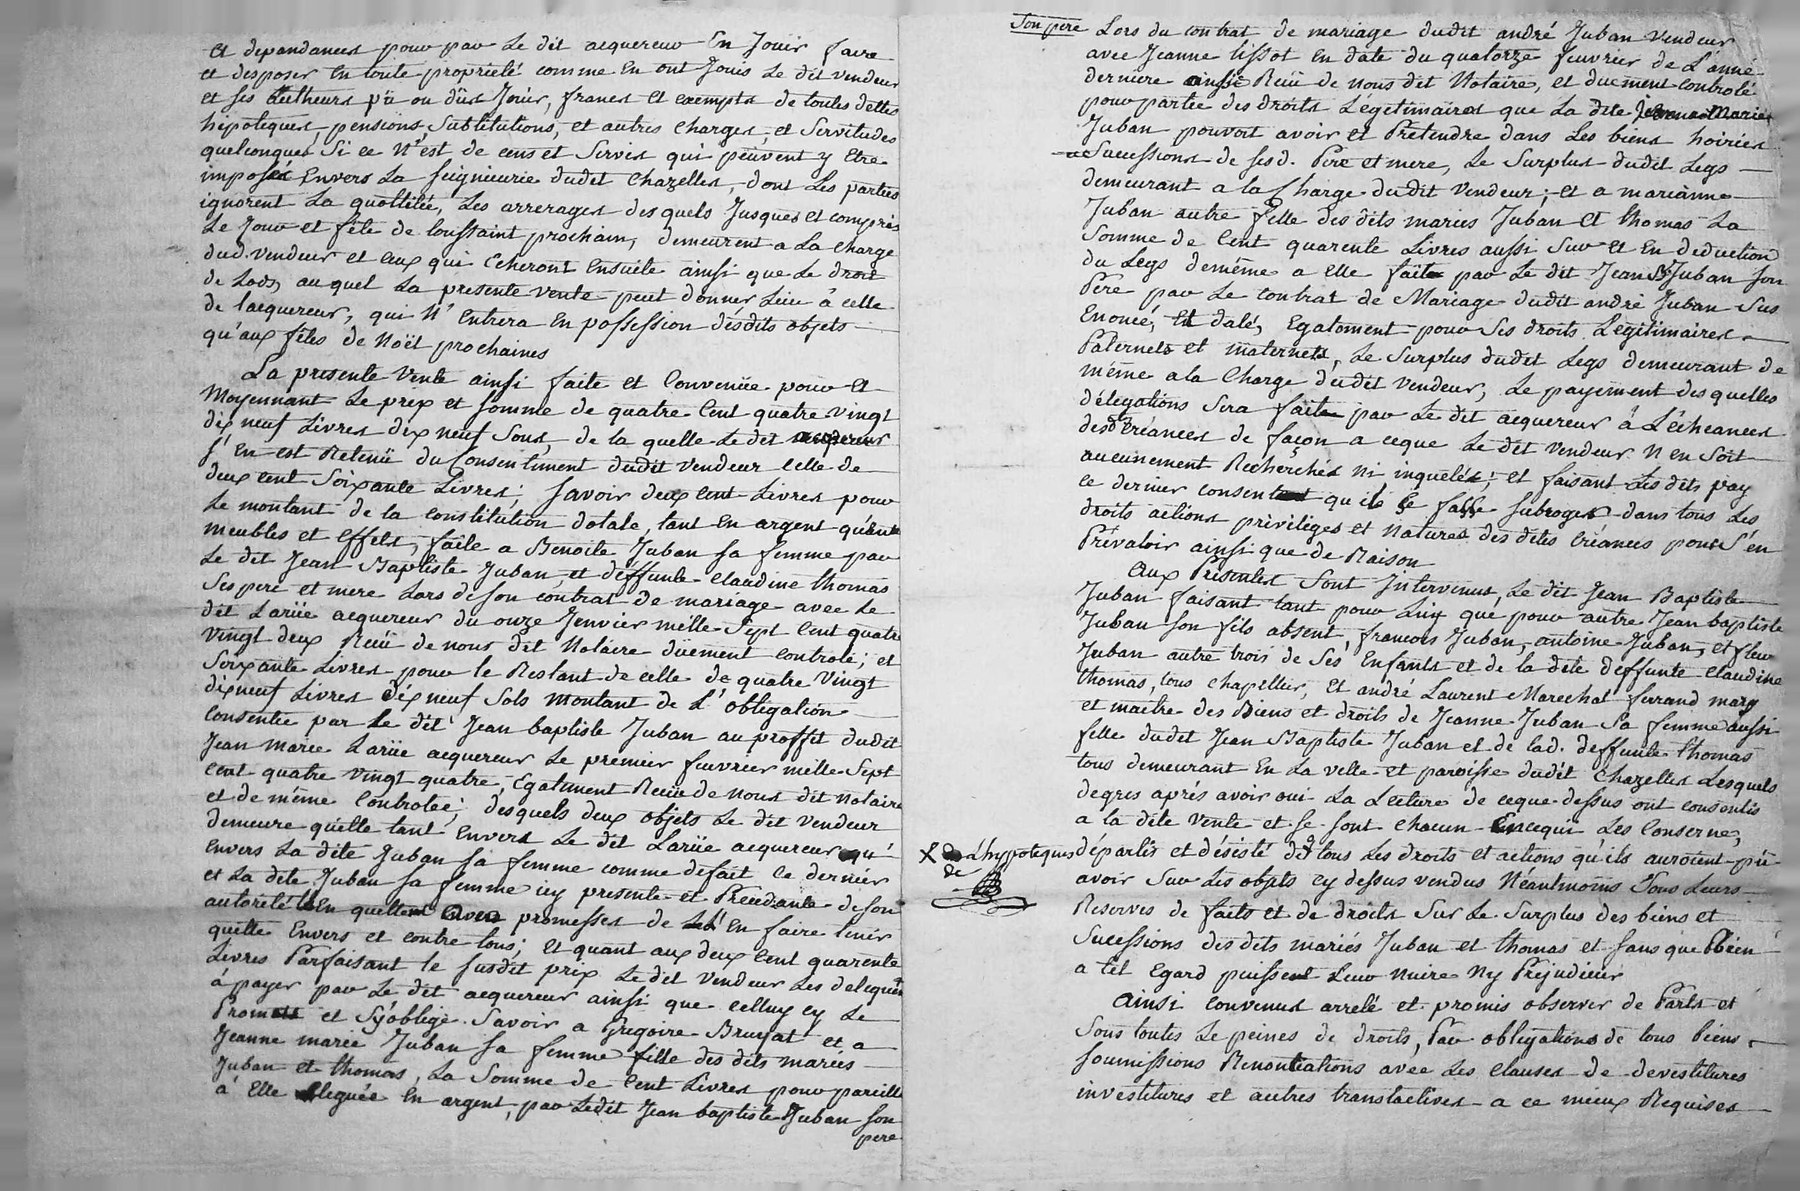 et dependances pour par Le dit acquereur En Jouir faire
et desposer En toute proprieté comme En ont Jouis Le dit vendeur
et ses autheurs pü ou dûs Joüir, francs Et exempts de toutes dettes
hipoteques, pensions, Substitutions, et autres Charges, et Servitudes
quelconques Si ce N'est de cens et Servis qui peuvent y Etre
imposés Envers La seigneurie dudit Chazelles, dont Les parties
ignorent La quottitée, Les arrerages desquels Jusques et compris
Le Jour et fête de toussaint prochain, demeurent a La charge
dud. vendeur et ceux qui Echeront Ensuite ainsi que Le droit
de Lods, auquel La presente vente peut donner Lieu à celle
de l'acquereur, qui N'Entrera En possession désdits objets
qu'aux fêtes de Noël prochaines
La presente Vente ainsi faite et Convenüe pour Et
Moyennant Le prix et somme de quatre Cent quatre vingt
dix neuf Livres dix neuf Sous, de la quelle Le dit acquereur
s'En est Retenu du Consentiment dudit vendeur Celle de
deux cent Soixante Livres; savoir deux Cent Livres pour
Le montant de la constitution dotale, tant En argent qu'en
meubles et Effets, faite a Benoite Juban sa femme par
Le dit Jean Baptiste Juban et deffunte Claudine thomas
Ses pere et mere Lors de son contrat de mariage avec Le
dit Larüe acquereur du onze Jenvier mille Sept Cent quatre
vingt deux Reçu de nous dit Notaire düement controlé; et
Soixante Livres pour le Restant de celle de quatre Vingt
dixneuf Livres dix neuf Sols montant de L'obligation
Consentie par Le dit Jean baptiste Juban au proffit dudit
Jean Marie Larüe acquereur Le premier fevrier mille Sept
Cent quatre Vingt quatre, Egalement Reçue de Nous dit notaire
et de même Controlée; desquels deux objets Le dit vendeur
demeure quitte tant Envers Le dit Larüe acquereur qu'
Envers La dite Juban sa femme comme defait Ce dernier
et La dite Juban sa femme icy presente et Procedante de son
autorité L'En quittent avec promesses de L'En faire tenir
quitte Envers et contre tous; Et quant aux deux Cent quarente
Livres Parfaisant le susdit prix Le dit Vendeur Les deleguer
à payer par Le dit acquereur ainsi que Celluy cy Le
Promet et S'y oblige Savoir a Gregoire Bruyat et a
Jeanne marie Juban sa femme fille des dits mariés
Juban et thomas, La Somme de Cent Livres pour pareille
à Elle Leguée En argent, par Ledit Jean baptiste Juban son
pere
Son pere Lors du contrat de mariage dudit andré Juban Vendeur
avec Jeanne lissot En date du quatorze fevrier de L'anné
derniere ainsi Reçu de nous dit Notaire, et duement controlé
pour partie des droits Légitimaires que La dite Jeanne Marie
Juban pouvoit avoir et Prétendre dans Les biens hoiries
Sucessions de ses d. Pere et mere, Le Surplus dudit Legs
demeurant a la Charge dudit vendeur; et a marianne
Juban autre fille des dits mariés Juban et thomas La
Somme de Cent quarente Livres aussi Sur Et En deduction
du Legs demême a elle fait par Le dit Jean Bte Juban son
Pere par Le contrat de Mariage dudit andré Juban Sus
Enoncé, Et daté, Egalement pour Ses droits Legitimaires
Paternels et maternels, Le Surplus dudit Legs demeurant de
même a la Charge dudit vendeur, Le payement des quelles
délegations Sera fait par Le dit acquereur à L'écheances
desd. créances de façon a ceque Le dit vendeur N'en Soit
aucunement Recherchés ni inquietés; et faisant Les dits pay
ce dernier consent qu'il Se fasse subroger dans tous Les
droits actions priviliges et Natures des dites Créances pour S'en
Prévaloir ainsi que de Raison
Aux Présentes Sont Intervenus, Le dit Jean Baptiste
Juban faisant tant pour Luy que pour autre Jean baptiste
Juban son fils absent, francois Juban, antoine Juban, et fleury
Juban autre trois de Ses Enfants et de la dite deffunte Claudine
thomas, tous chapellier, Et andré Laurent Marechal ferrand mary
et maître des Biens et droits de Jeanne Juban Sa femme aussi
fille dudit Jean Baptiste Juban et de lad. deffunte thomas
tous demeurant En La ville et paroisse dudit Chazelles Lesquels
degres aprés avoir oui La Lecture de ceque dessus ont consentis
a la dite vente et se sont chacun Encequi Les Conserne,
X L'hypoteques de
départis et désisté de tous Les droits et actions qu'ils auroient pü
avoir Sur Les objets cy dessus vendus Néantmoins Sous Leurs
Reserves de faits et de droits Sur Le Surplus des biens et
Sucessions des dits mariés Juban et thomas et sans que Rien
a tel Egard puissent Leur Nuire Ny Préjudicier
Ainsi convenus arreté et promis observer de Parts et
Sous toutes Le peines de droits, Par obligations de tous biens
soumissions Renontiations avec Les Clauses de devestitures
investitures et autres translactives a ce mieux Requises